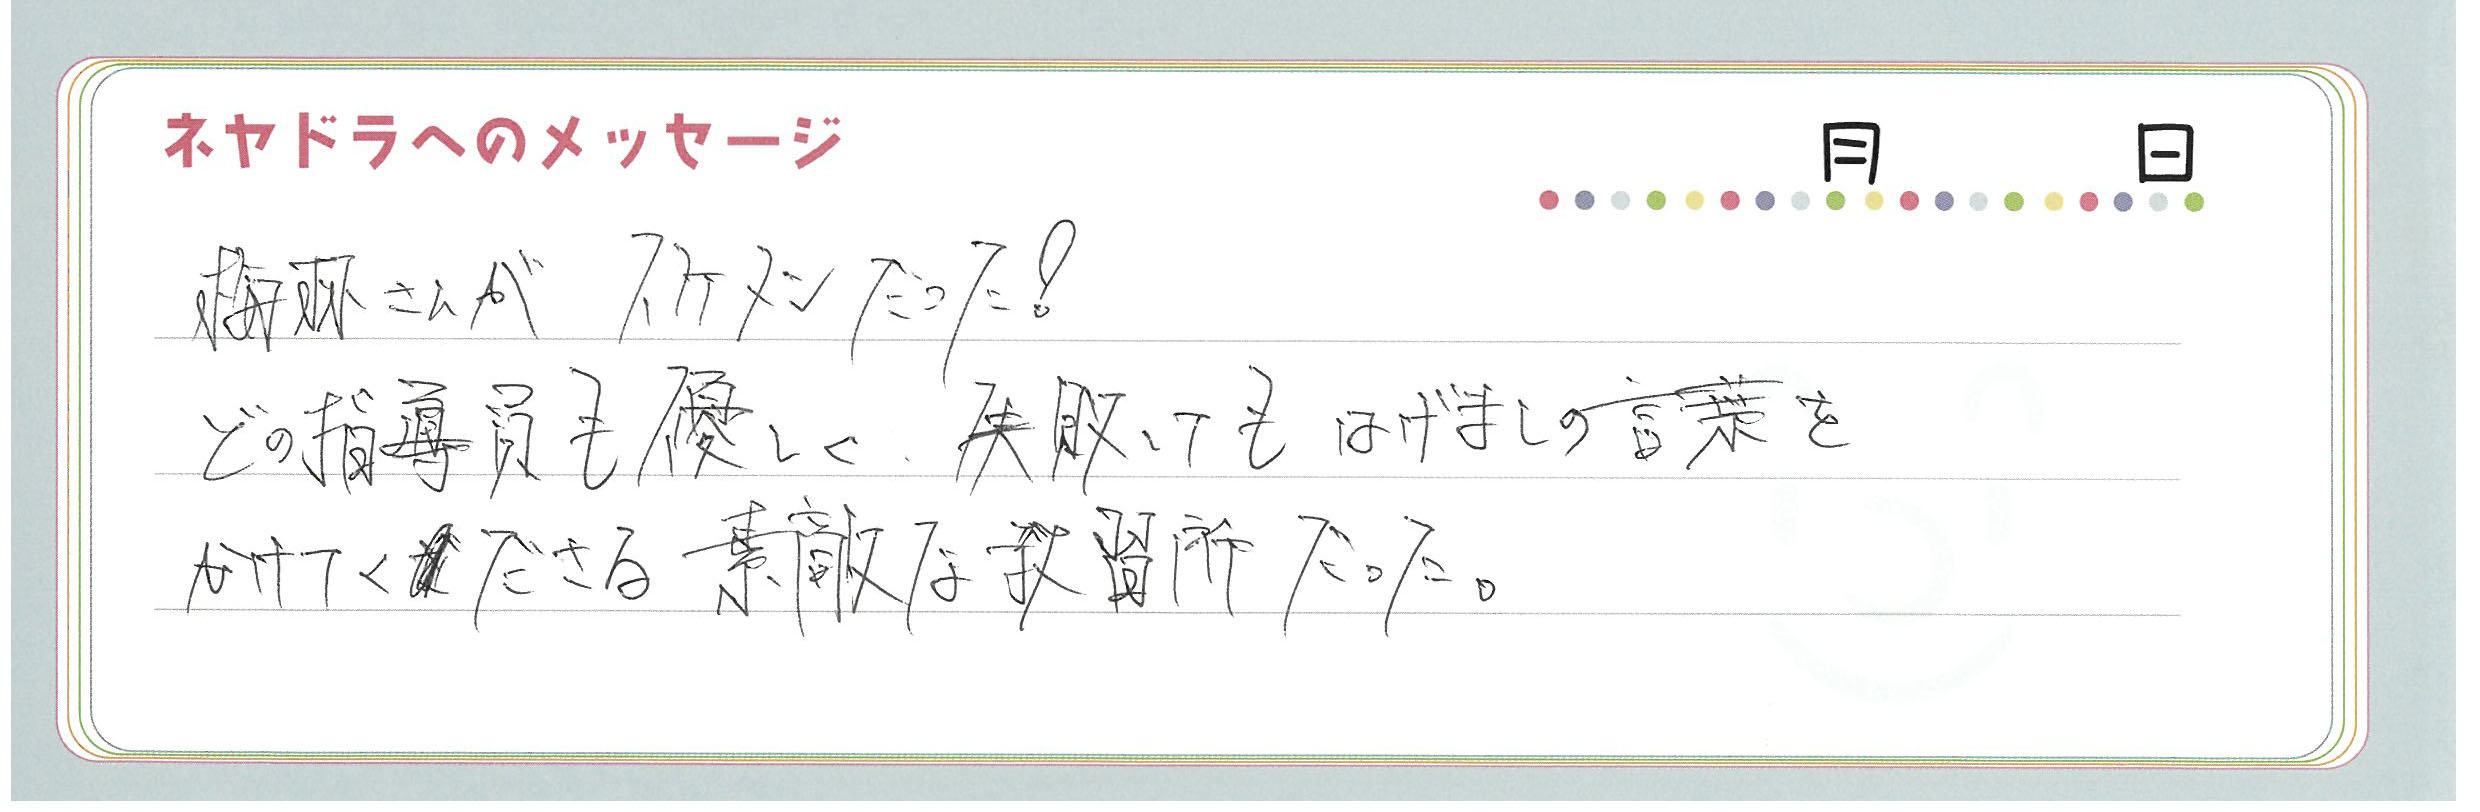 ネヤドラへのメッセージ
月 日
梅林さんが イケメンだった!
どの指導員も優しく、失敗しても はげましの言葉を
かけてくださる素敵な教習所だった。